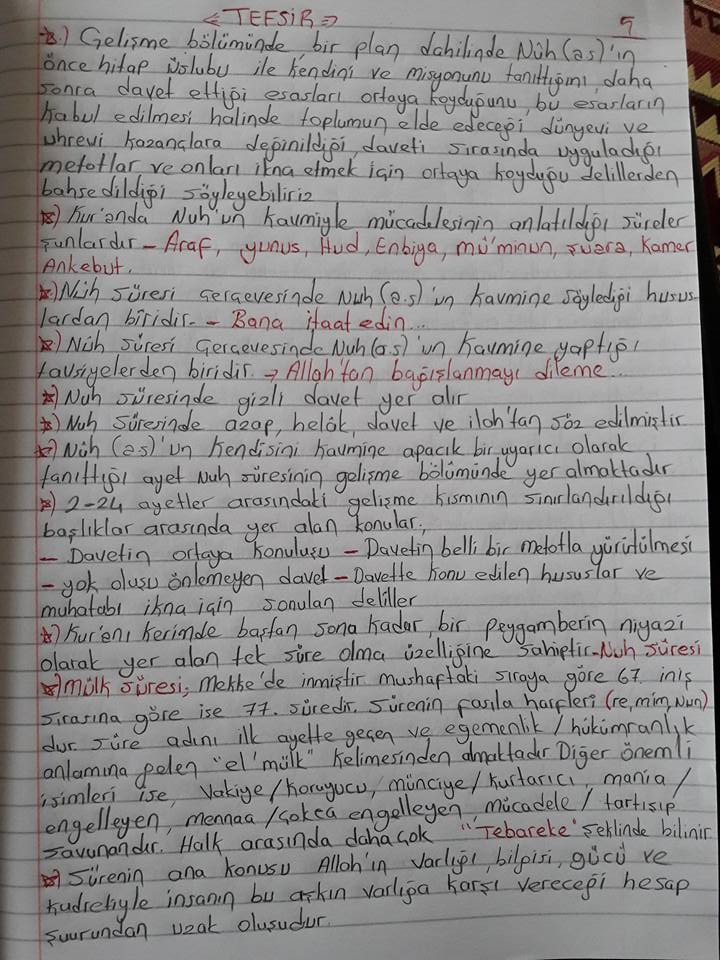 <= TEFSİR =>
5
*) Gelişme bölümünde, bir plan dahilinde Nûh (as)'ın
önce hitap üslubu ile kendini ve misyonunu tanıttığını, daha
sonra davet ettiği esasları ortaya koyduğunu, bu esasların
kabul edilmesi halinde toplumun elde edeceği dünyevi ve
uhrevi kazançlara değinildiği, daveti sırasında uyguladığı
metotlar ve onları ikna etmek için ortaya koyduğu delillerden
bahsedildiği söyleyebiliriz
*) Kur'anda Nuh'un kavmiyle mücadelesinin anlatıldığı sûreler
şunlardır - Araf, yunus, Hud, Enbiya, mü'minun, şuara, Kamer
Ankebut.
*) Nûh sûresi çerçevesinde Nuh (a.s)'un kavmine söylediği husus
lardan biridir. - Bana itaat edin...
*) Nûh sûresi çerçevesinde Nuh (as)'un kavmine yaptığı
tavsiyelerden biridir. → Allah'tan bağışlanmayı dileme...
*) Nuh sûresinde gizli davet yer alır
*) Nuh sûresinde azap, helâk, davet ve ilah'tan söz edilmiştir
*) Nûh (as)'un kendisini kavmine apaçık bir uyarıcı olarak
tanıttığı ayet Nuh sûresinin gelişme bölümünde yer almaktadır
*) 2-24 ayetler arasındaki gelişme kısmının sınırlandırıldığı
başlıklar arasında yer alan konular;
- Davetin ortaya konuluşu - Davetin belli bir metotla yürütülmesi
- yok oluşu önlemeyen davet - Davette konu edilen hususlar ve
muhatabı ikna için sonulan deliller
*) Kur'enı kerimde baştan sona kadar, bir peygamberin niyazi
olarak yer alan tek sûre olma üzelliğine sahiptir - Nuh sûresi
*) mülk sûresi; Mekke'de inmiştir mushaftaki sıraya göre 67. iniş
sırasına göre ise 77. sûredir. Sûrenin fasıla harfleri (re, mim, Nun)
dur. sûre adını ilk ayette geçen ve egemenlik / hükümranlık
anlamına gelen "el'mülk" kelimesinden almaktadır. Diğer önemli
isimleri ise, Vakiye / koruyucu, münciye / kurtarıcı, mania /
engelleyen, mennaa / çokca engelleyen, mücadele / tartışıp
savunandır. Halk arasında daha çok "Tebareke" şeklinde bilinir
*) Sûrenin ana konusu Allah'ın varlığı, bilgisi, gücü ve
kudretiyle insanın bu aşkın varlığa karşı vereceği hesap
şuurundan uzak oluşudur.